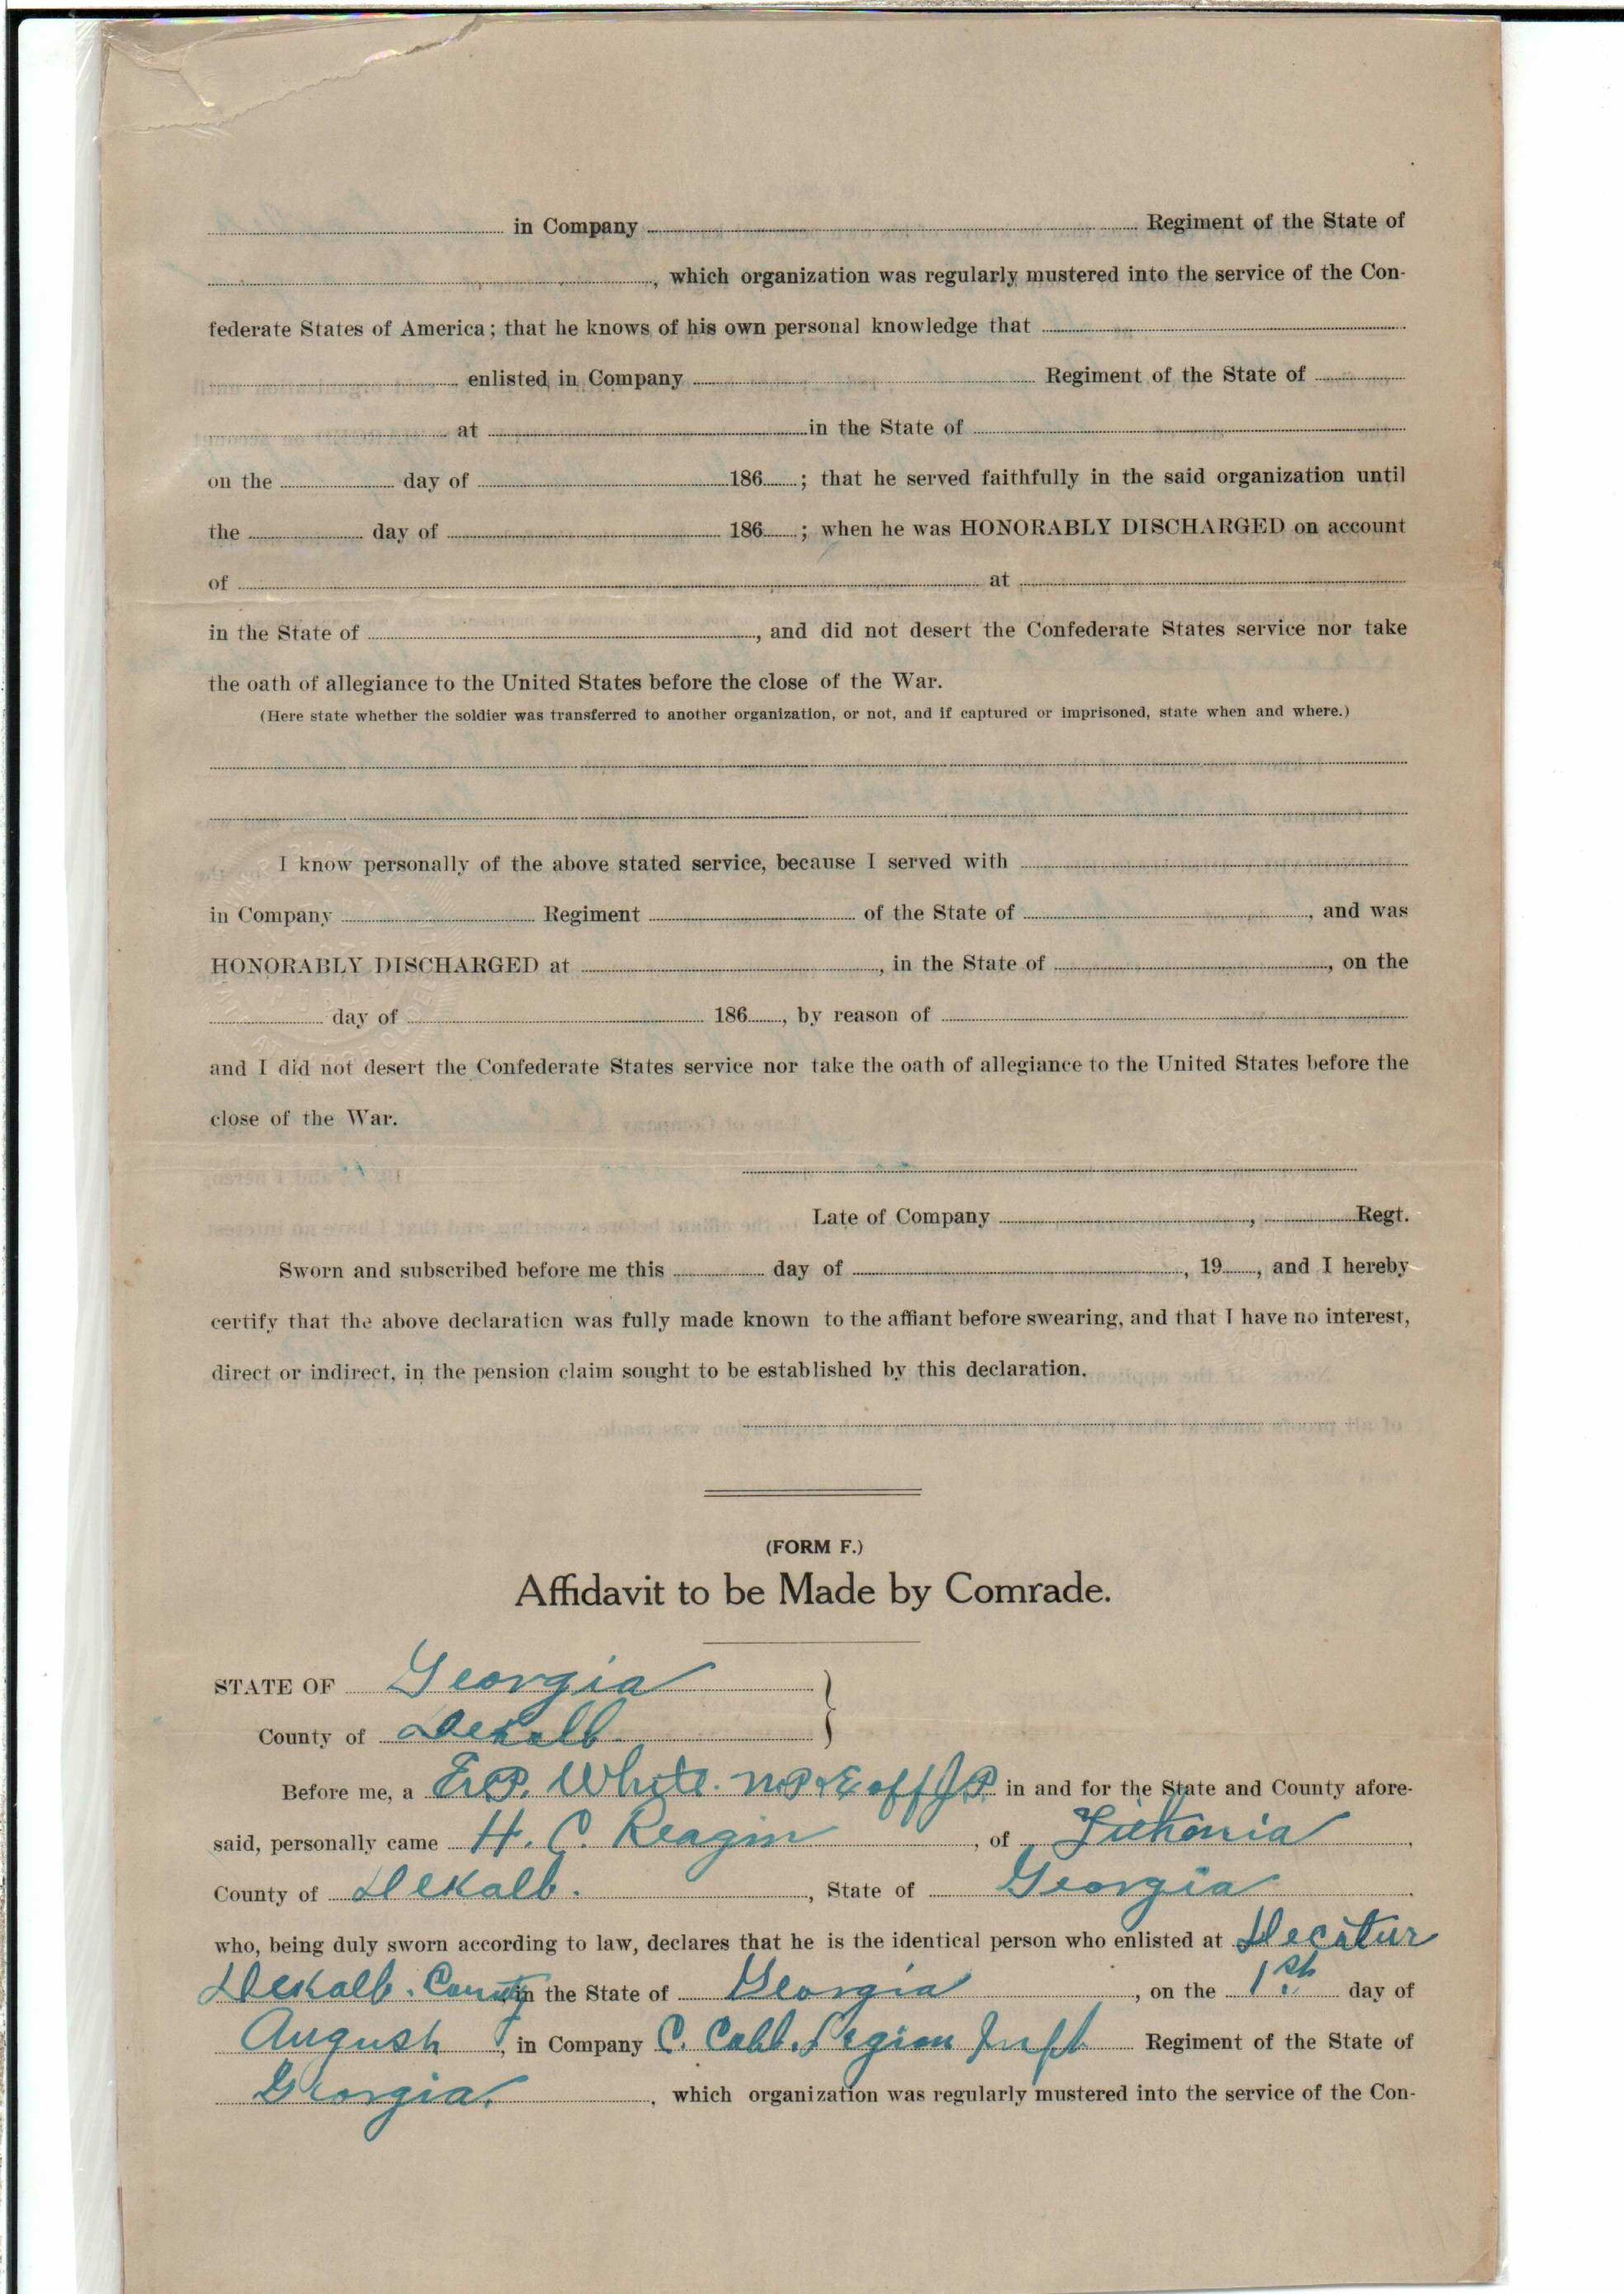 in Company Regiment of the State of
, which organization was regularly mustered into the service of the Con-
federate States of America; that he knows of his own personal knowledge that
enlisted in Company Regiment of the State of
at in the State of
on the day of 186 ; that he served faithfully in the said organization until
the day of 186 ; when he was HONORABLY DISCHARGED on account
of at
in the State of , and did not desert the Confederate States service nor take
the oath of allegiance to the United States before the close of the War.
(Here state whether the soldier was transferred to another organization, or not, and if captured or imprisoned, state when and where.)
I know personally of the above stated service, because I served with
in Company Regiment of the State of , and was
HONORABLY DISCHARGED at , in the State of , on the
day of 186 , by reason of
and I did not desert the Confederate States service nor take the oath of allegiance to the United States before the
close of the War.
Late of Company , Regt.
Sworn and subscribed before me this day of , 19 , and I hereby
certify that the above declaration was fully made known to the affiant before swearing, and that I have no interest,
direct or indirect, in the pension claim sought to be established by this declaration.
(FORM F.)
Affidavit to be Made by Comrade.
STATE OF Georgia }
County of Dekalb
Before me, a White in and for the State and County afore-
said, personally came H. C. Reagin , of Lithonia ,
County of Dekalb. , State of Georgia
who, being duly sworn according to law, declares that he is the identical person who enlisted at Decatur
Dekalb. County in the State of Georgia , on the 1st day of
August , in Company C. Cobb. Legion Inft Regiment of the State of
Georgia. , which organization was regularly mustered into the service of the Con-